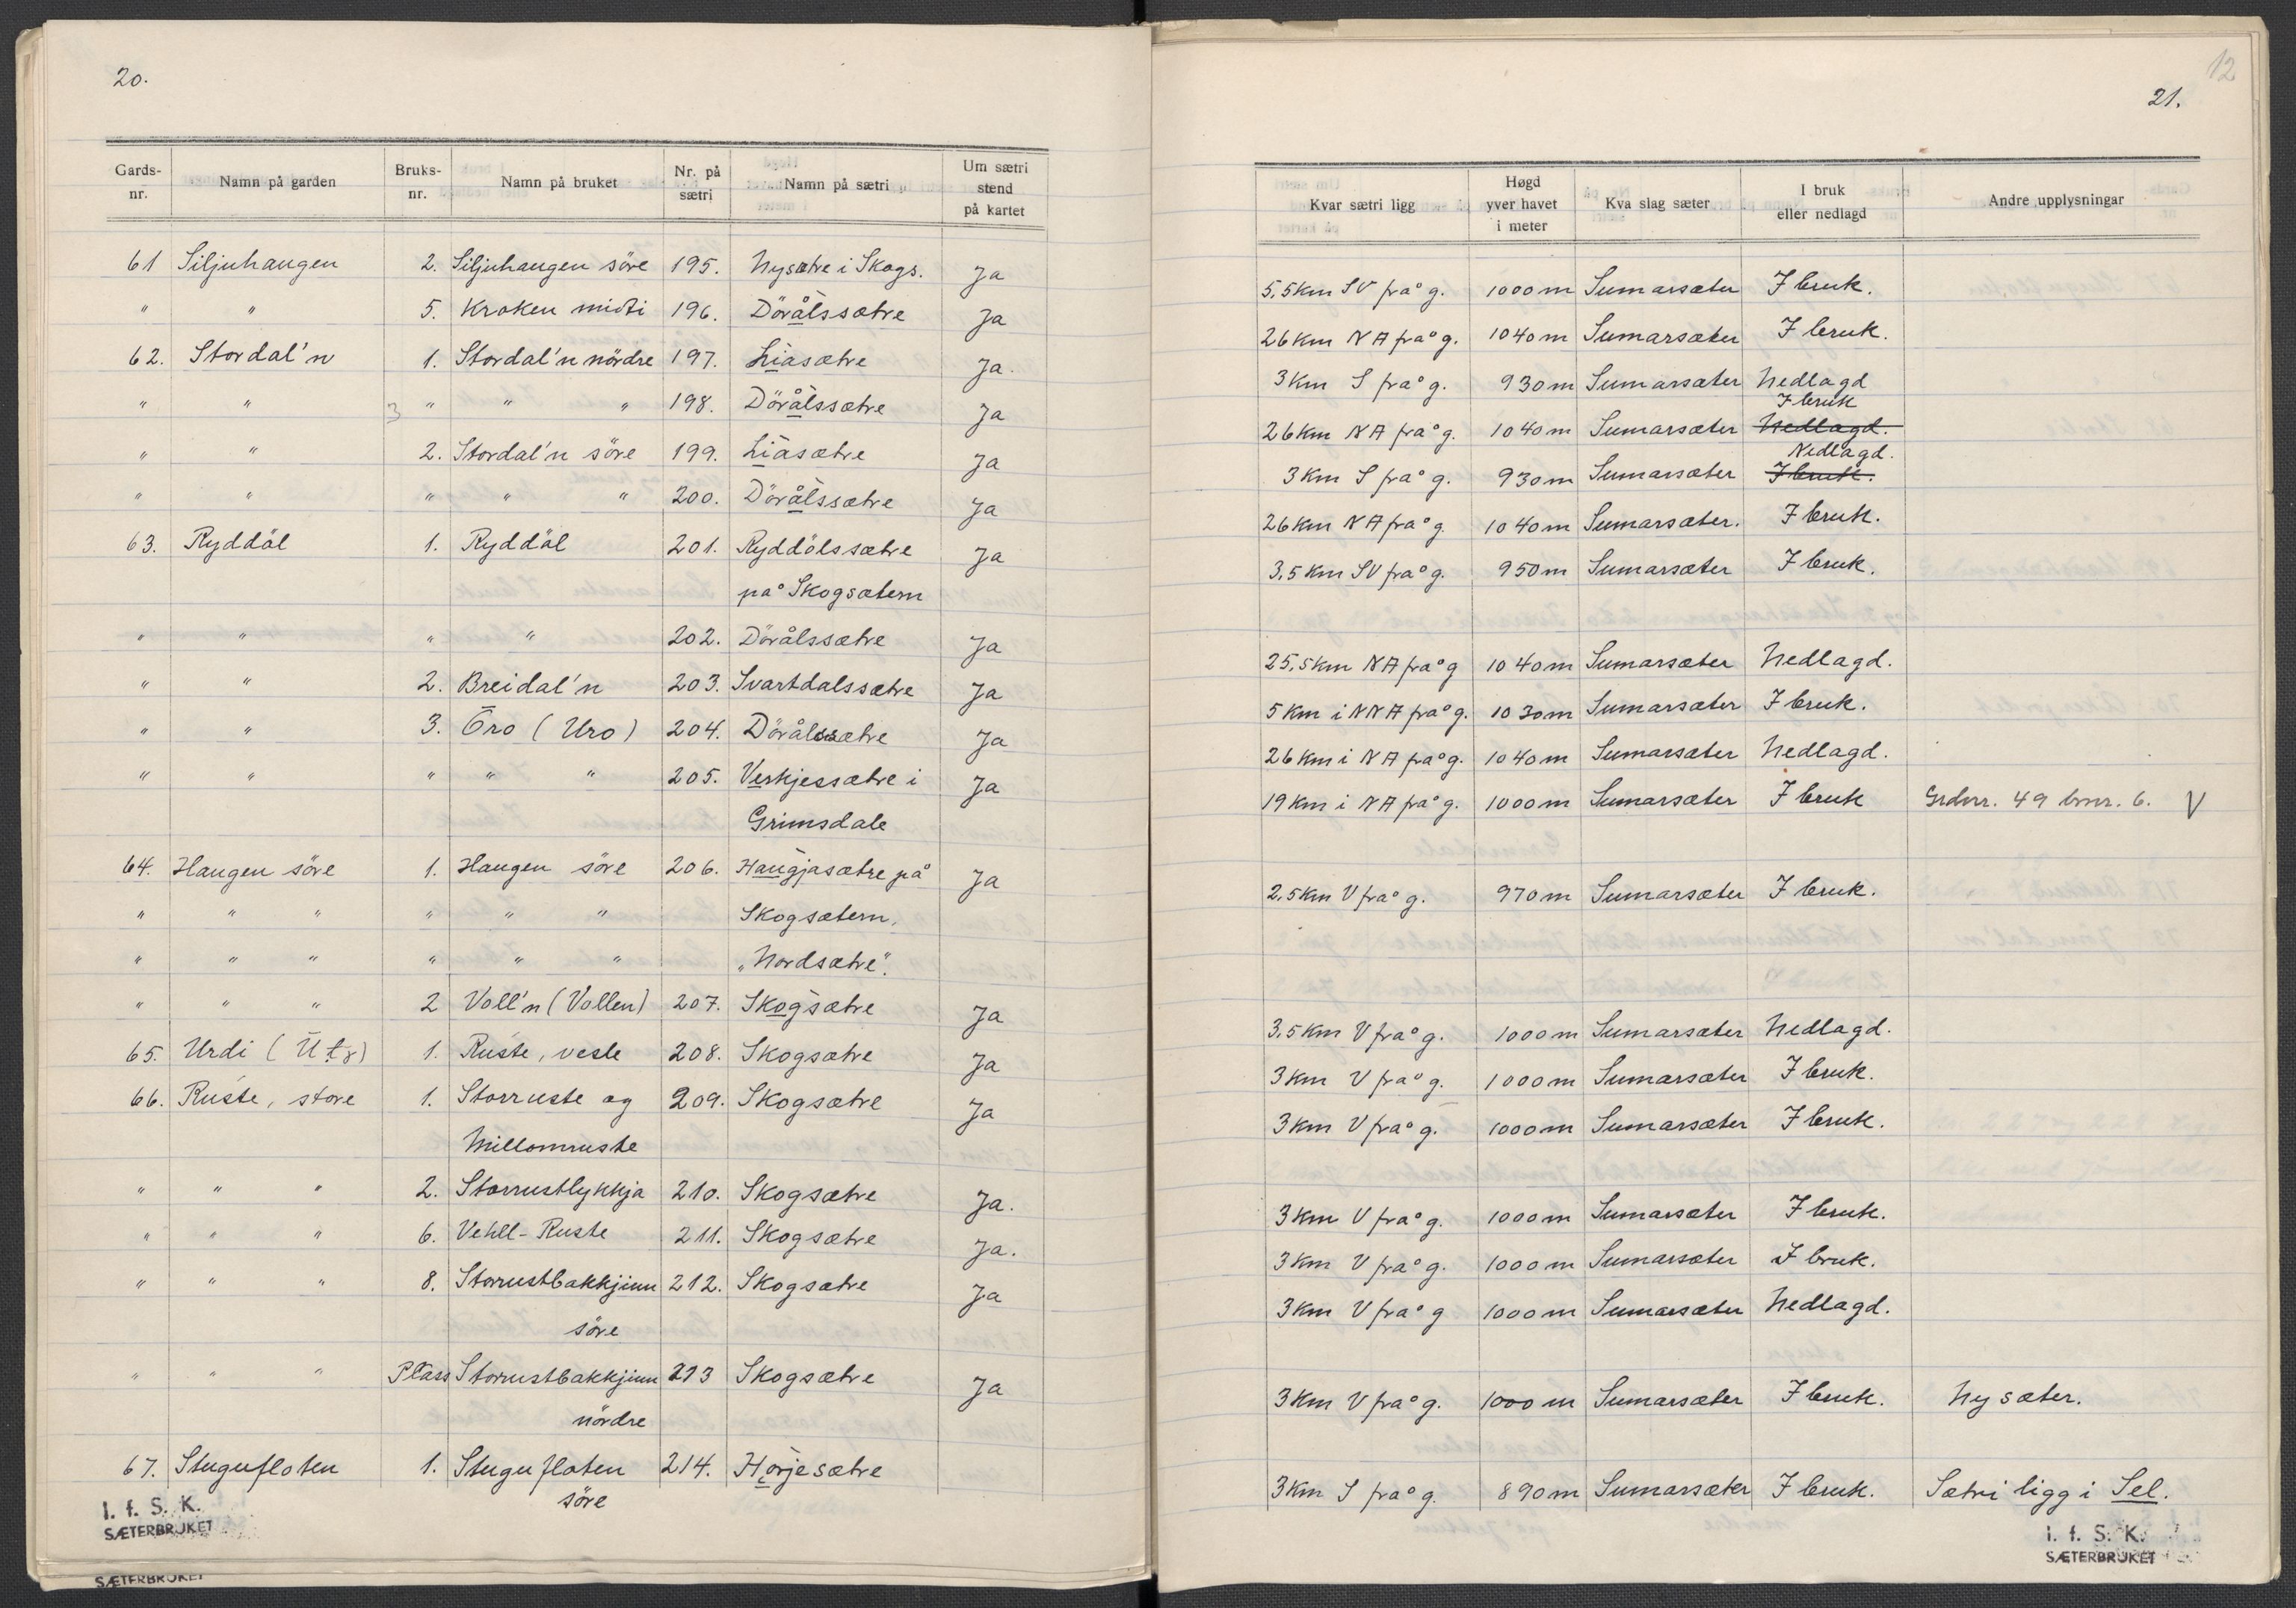 20.
Gards-nr. Namn på garden Bruks-nr. Namn på bruket Nr. på sætri Namn på sætri Um sætri stend på kartet
61 Siljuhaugen 2. Siljuhaugen söre 195. Nysætre i Skogs. Ja
" " 5. Kroken midti 196. Dörålssætre Ja
62. Stordal'n 1. Stordal'n nördre 197. Liasætre Ja.
" " 3 " " " 198. Dörålssætre Ja
" " 2. Stordal'n söre 199. Liasætre Ja
" " " " " 200. Dörålssætre Ja
63. Ryddöl 1. Ryddöl 201. Ryddölssætre Ja
på Skogsætern
" " " " 202. Dörålssætre Ja
" " 2. Breidal'n 203. Svartdalssætre Ja
" " 3. Öro (Uro) 204. Dörålssætre Ja
" " " " " 205. Verkjessætre i Ja
Grimsdale
64. Haugen söre 1. Haugen söre 206. Haugjasætre på Ja
" " " " " " Skogsætern,
" " " " " " "Nordsætre".
" " " 2 Voll'n (Vollen) 207. Skogsætre Ja
65. Urdi 1. Ruste, vesle 208. Skogsætre Ja
66. Ruste, store 1. Storruste og 209. Skogsætre Ja
Millomruste
" " " 2. Storrustlykkja 210. Skogsætre Ja.
" " " 6. Vehll-Ruste 211. Skogsætre Ja.
" " " 8. Storrustbakkjinn 212. Skogsætre Ja
söre
" " " Plass Storrustbakkjinn 213 Skogsætre Ja
nördre
67. Stugufloten 1. Stuguflaten 214. Horjesætre
söre
I. f. S. K.
SÆTERBRUKET
SÆTERBRUKET
12
21.
Kvar sætri ligg Høgd yver havet i meter Kva slag sæter I bruk eller nedlagd Andre upplysningar
5,5 km SV frå g. 1000 m Sumarsæter I bruk.
26 km NA frå g. 1040 m Sumarsæter I bruk.
3 km S frå g. 930 m Sumarsæter Nedlagd
I bruk
26 km NA frå g. 1040 m Sumarsæter Nedlagd.
Nedlagd.
3 km S frå g. 930 m Sumarsæter I bruk.
26 km NA frå g 1040 m Sumarsæter. I bruk.
3,5 km SV frå g. 950 m Sumarsæter I bruk.
25,5 km NA frå g 1040 m Sumarsæter Nedlagd.
5 km i NNA frå g. 1030 m Sumarsæter I bruk.
26 km i NA frå g. 1040 m Sumarsæter Nedlagd.
19 km i NA frå g. 1000 m Sumarsæter I bruk Grdnr. 49 brnr. 6. V
2,5 km V frå g. 970 m Sumarsæter I bruk.
3,5 km V frå g. 1000 m Sumarsæter Nedlagd.
3 km V frå g. 1000 m Sumarsæter I bruk.
3 km V frå g. 1000 m Sumarsæter I bruk.
3 km V frå g. 1000 m Sumarsæter I bruk.
3 km V frå g. 1000 m Sumarsæter I bruk.
3 km V frå g 1000 m Sumarsæter Nedlagd.
3 km V frå g. 1000 m Sumarsæter I bruk. Ny sæter.
3 km S frå g. 890 m Sumarsæter I bruk. Sætri ligg i Sel.
I. f. S. K.
SÆTERBRUKET